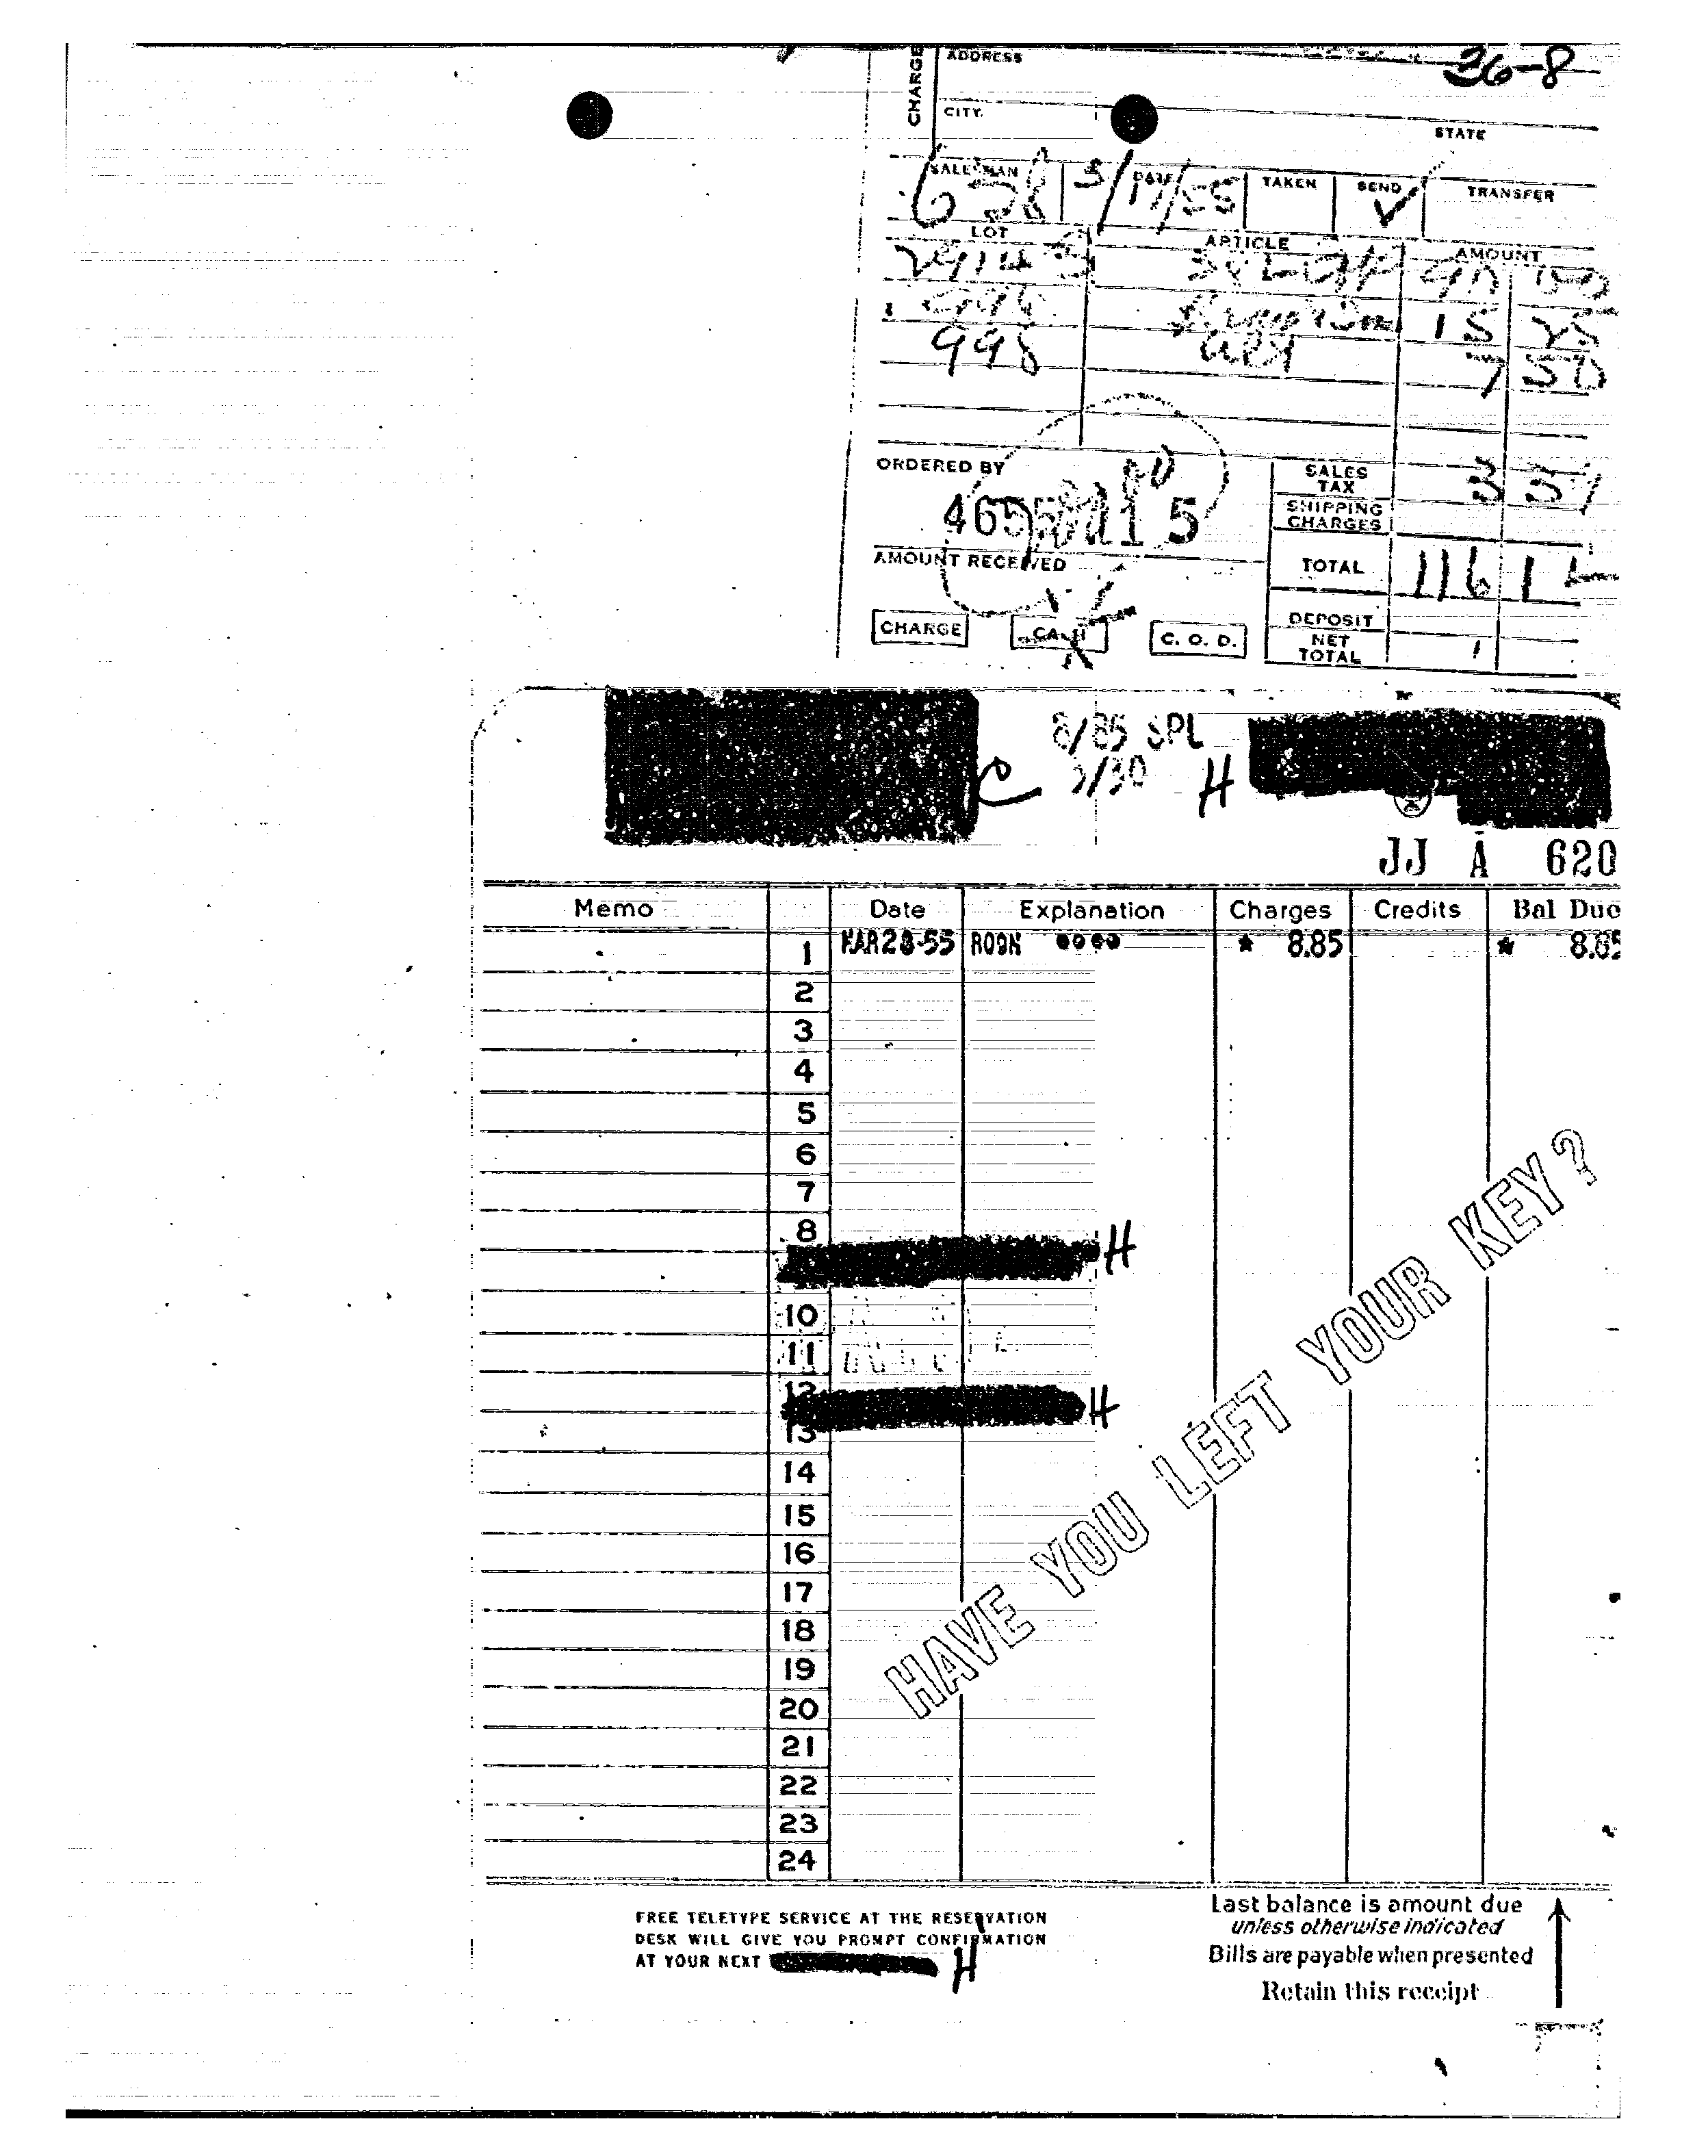 36-8
CHARGE
ADDRESS
CITY
STATE
SALESMAN DATE TAKEN SEND TRANSFER
3/17/55
LOT ARTICLE AMOUNT
15 25
998 7 50
ORDERED BY
SALES TAX 3 37
SHIPPING CHARGES
AMOUNT RECEIVED
TOTAL 116 12
DEPOSIT
CHARGE CASH C. O. D.
NET TOTAL
8/85 SPL
C 3/30 H
JJ A 620
Memo Date Explanation Charges Credits Bal Due
1 MAR 28-55 ROOM * 8.85 * 8.85
2
3
4
5
6
7
8
H
10
11
12
H
13
14
15
16
17
18
19
20
21
22
23
24
HAVE YOU LEFT YOUR KEY?
FREE TELETYPE SERVICE AT THE RESERVATION
DESK WILL GIVE YOU PROMPT CONFIRMATION
AT YOUR NEXT H
Last balance is amount due
unless otherwise indicated
Bills are payable when presented
Retain this receipt